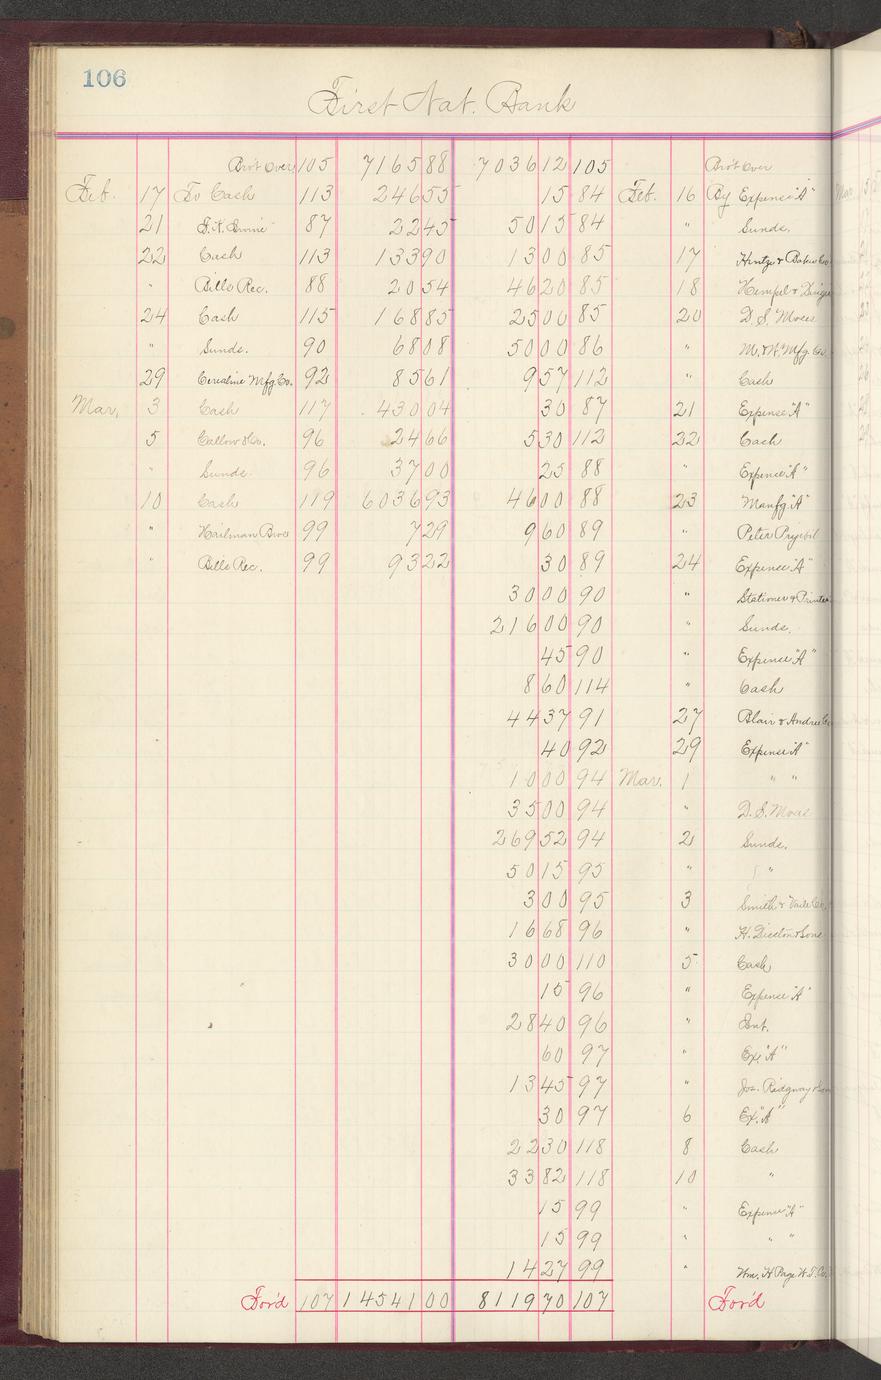 106
First Nat. Bank
Bro't Over 105 7165 88 7036 12 105 Bro't Over
Feb. 17 To Cash 113 246 55 15 84 Feb. 16 By Expense "A"
21 87 22 45 50 15 84 " Sunds.
22 Cash 113 133 90 13 00 85 17 Hintze & Baker Co.
" Bills Rec. 88 20 54 46 20 85 18 Hempel &
24 Cash 115 168 85 25 00 85 20 D. S. Moses
" Sunds. 90 68 08 50 00 86 " M. & W. Mfg. Co.
29 Cerealine Mfg. Co. 92 85 61 9 57 112 " Cash
Mar. 3 Cash 117 430 04 30 87 21 Expense "A"
5 Callow & Co. 96 24 66 5 30 112 22 Cash
" Sunds. 96 37 00 25 88 " Expense "A"
10 Cash 119 6036 93 46 00 88 23 Manfg. "A"
" Hailman Bros 99 7 29 9 60 89 " Peter Pryibil
" Bills Rec. 99 93 22 30 89 24 Expense "A"
30 00 90 " Stationer & Printer
216 00 90 " Sunds.
45 90 " Expense "A"
8 60 114 " Cash
44 37 91 27 Blair & Andree Co
40 92 29 Expense "A"
10 00 94 Mar. 1 " "
35 00 94 " D. S. Moses
269 52 94 2 Sunds.
50 15 95 " "
3 00 95 3 Smith & Vaile Co.
16 68 96 " H. Disston & Sons
30 00 110 5 Cash
15 96 " Expense "A"
28 40 96 " Int.
60 97 " Exp. "A"
13 45 97 " Jos. Ridgway & Son
30 97 6 Ex. "A"
22 30 118 8 Cash
33 82 118 10 "
15 99 " Expense "A"
15 99 " " "
14 27 99 " Wm. H. Page W. T. Co.
For'd 107 14541 00 8119 70 107 For'd